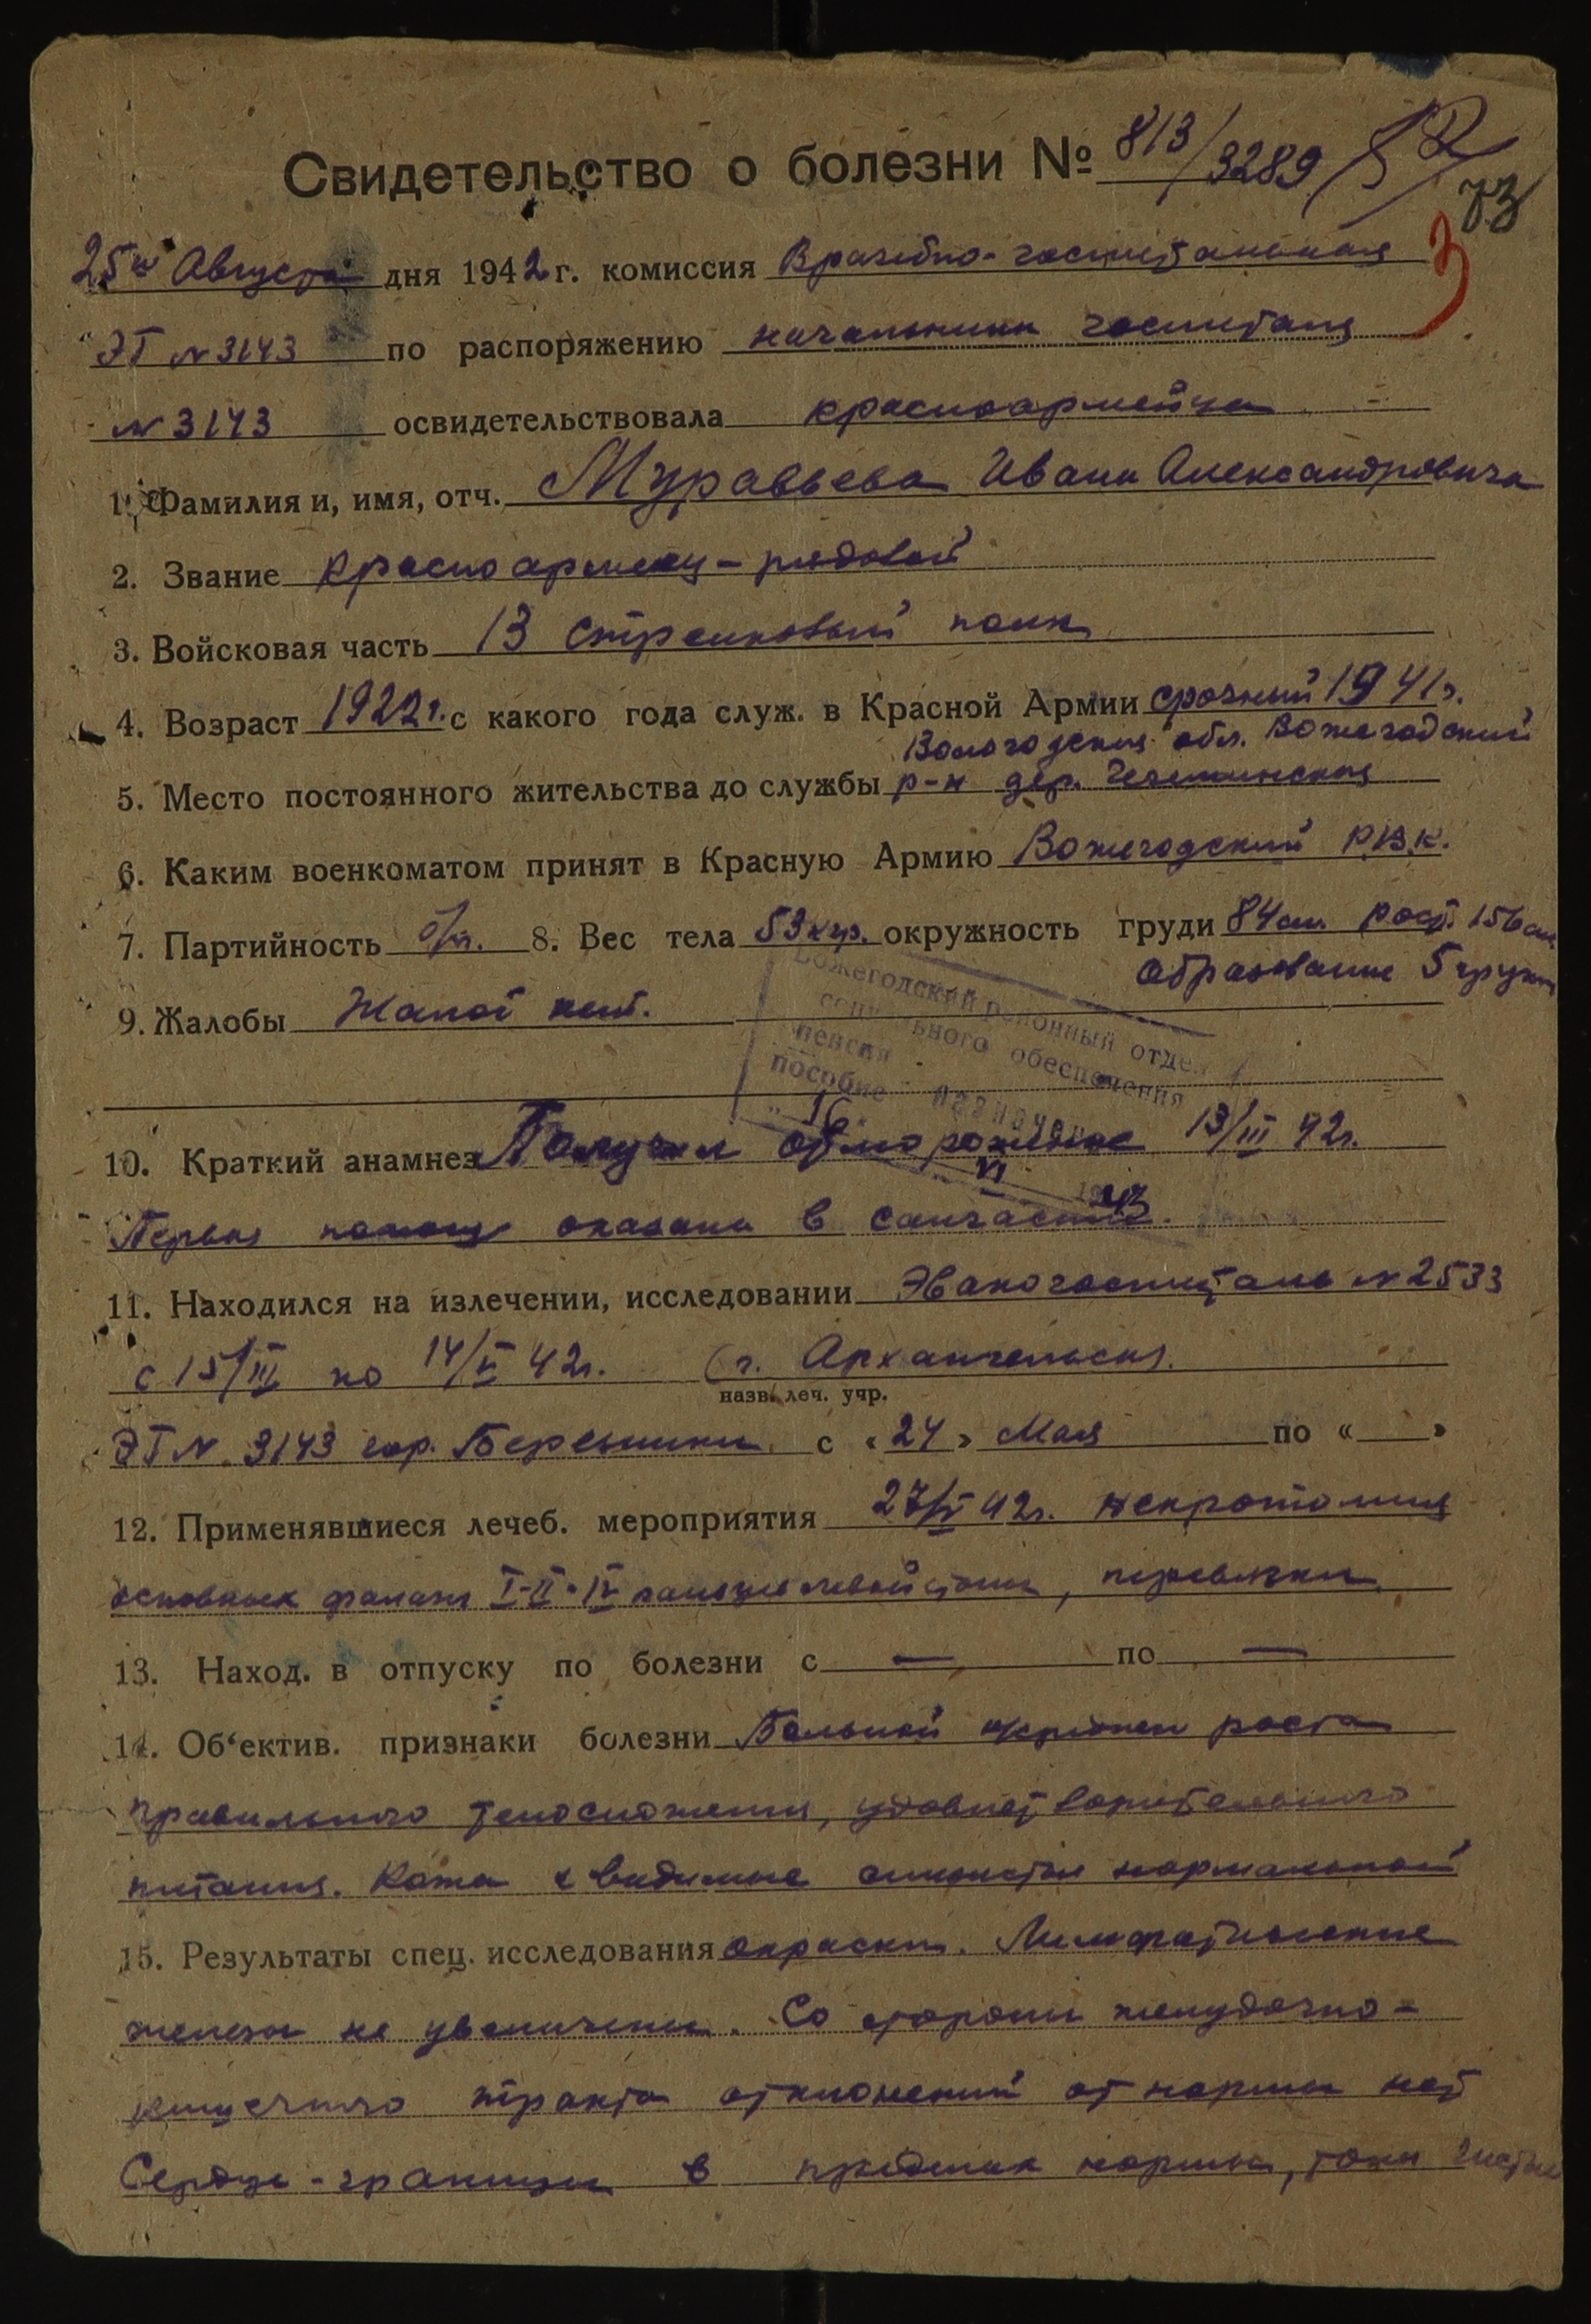 Свидетельство о болезни № 813/3289
73
3
25го Августа дня 1942 г. комиссия Врачебно-госпитальная
ЭГ N 3143 по распоряжению начальника госпиталя
N 3143 освидетельствовала красноармейца
1. Фамилия и, имя, отч. Муравьева Ивана Александровича
2. Звание красноармеец - рядовой
3. Войсковая часть 13 стрелковый полк
4. Возраст 1922 г. с какого года служ. в Красной Армии срочный 1941 г.
Вологодская обл. Вожегодский
5. Место постоянного жительства до службы р-н дер.
6. Каким военкоматом принят в Красную Армию Вожегодский Р.В.К.
7. Партийность б/п. 8. Вес тела 53 кгр. окружность груди 84 см. рост. 156 см.
Образование 5 групп
9. Жалобы Жалоб нет.
Вожегодский районный отдел
социального обеспечения
пенсия
пособие назначен
16
VI 1943
10. Краткий анамнез Получил обморожение 13/III 42 г.
Первая помощь оказана в санчасти.
11. Находился на излечении, исследовании Эвакогоспиталь N 2533
с 15/III по 14/V 42 г. (г. Архангельск).
назв. леч. учр.
ЭГ N. 3143 гор. Березники с «24» Мая по « »
12. Применявшиеся лечеб. мероприятия 27/V 42 г. некротомия
основных фаланг I-II-IV пальцев левой стопы, перевязки.
13. Наход. в отпуску по болезни с — по —
14. Об‘ектив. признаки болезни Больной роста
правильного телосложения, удовлетворительного
питания. Кожа и видимые слизистые нормальной
15. Результаты спец. исследования окраски. Лимфатические
железы не увеличены. Со стороны желудочно-
кишечного тракта отклонений от нормы нет
Сердце - границы в пределах нормы, тоны чистые